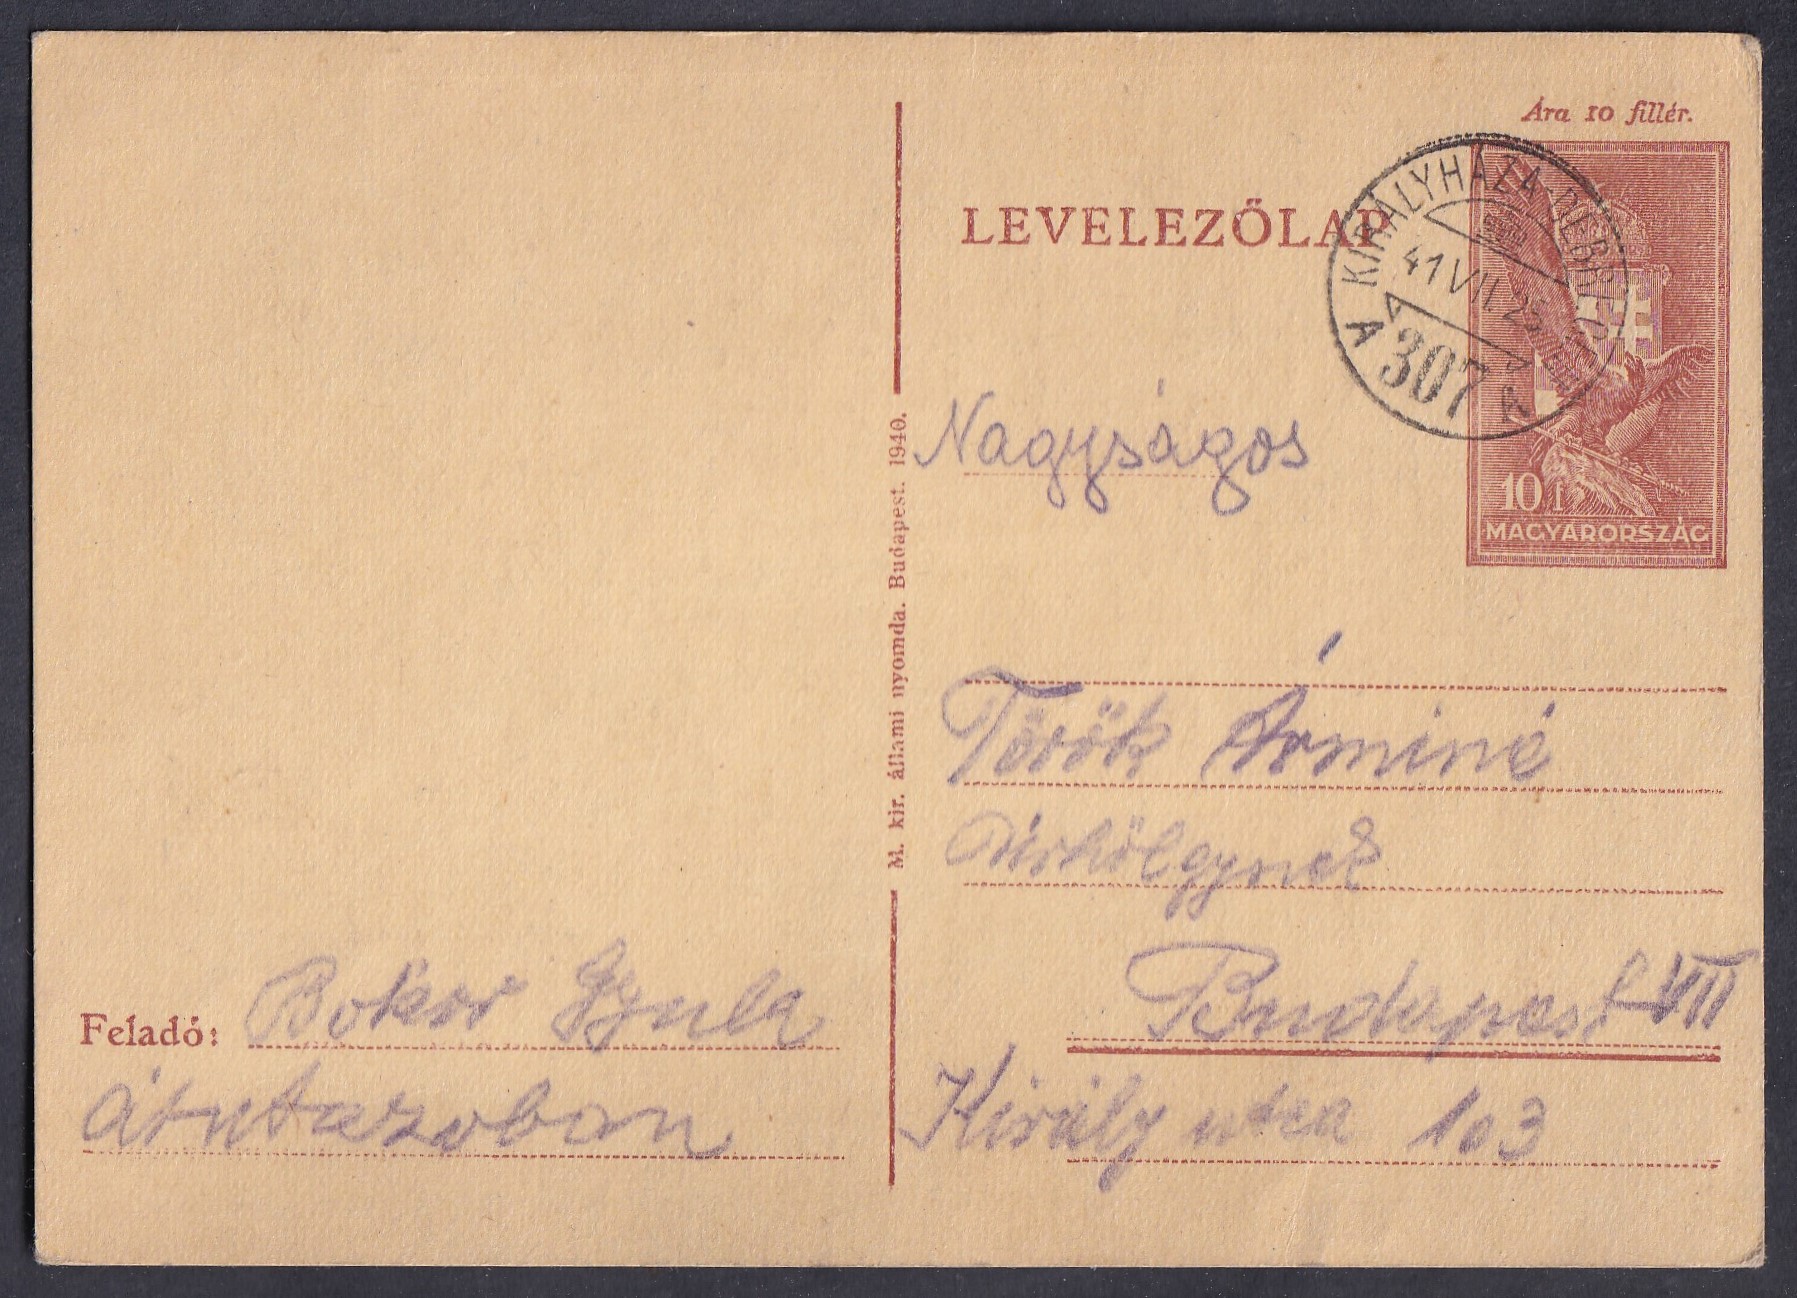 Ára 10 fillér.
LEVELEZŐLAP
KIRÁLYHÁZA-DEBRECEN
41 VII. 22
A 307 A
10 f
MAGYARORSZÁG
Nagyságos
Török Árminé
Úrhölgynek
Budapest VII
Király utca 103
M. kir. állami nyomda. Budapest. 1940.
Feladó: Bokor Gyula
átutazoban